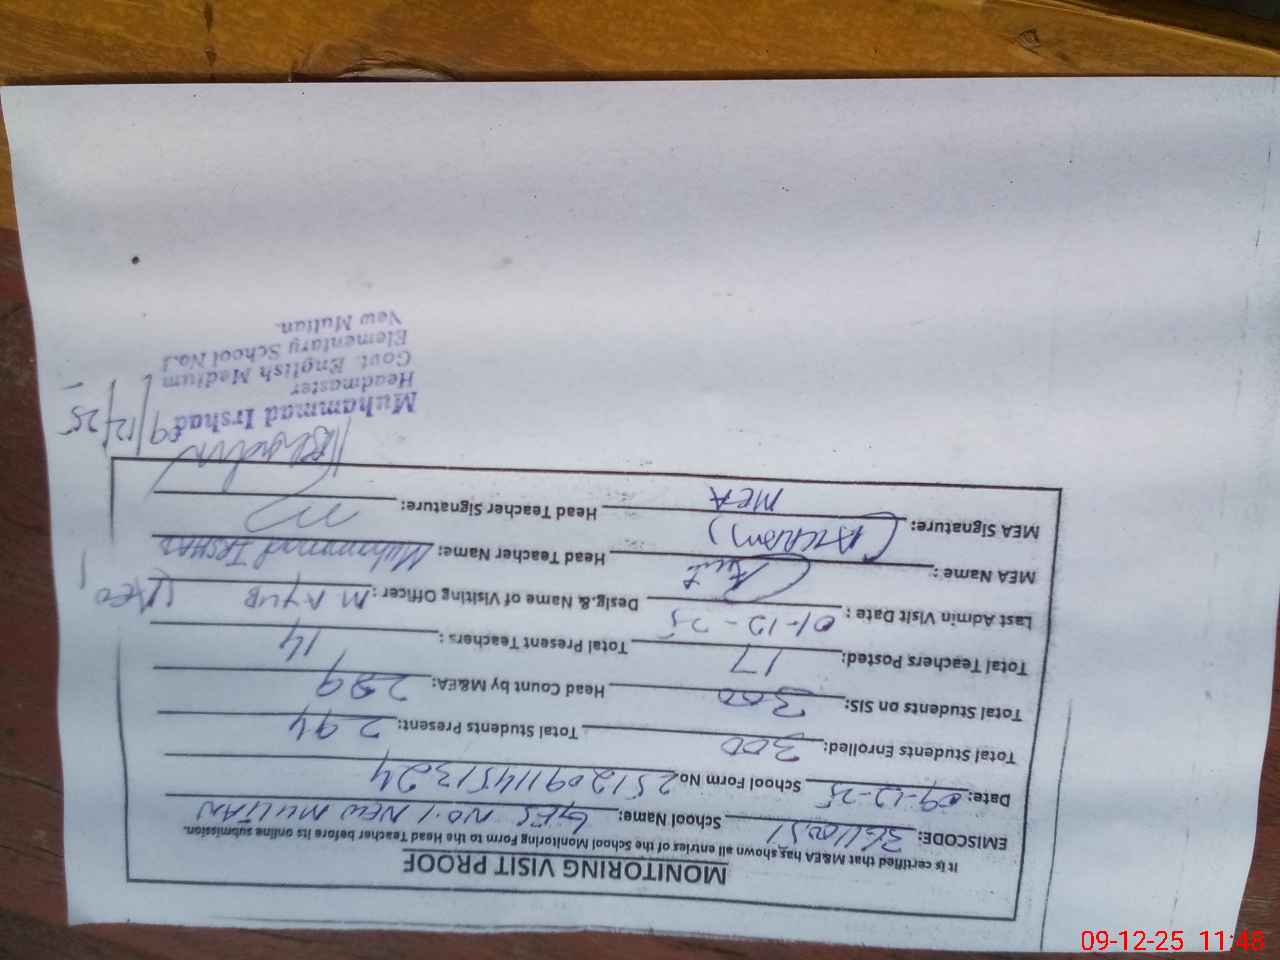 MONITORING VISIT PROOF
It is certified that M&EA has shown all entries of the School Monitoring Form to the Head Teacher before its online submission.
EMISCODE: School Name: GES NO.1 NEW MULTAN
Date: 09-12-25 School Form No 2512091145132 4
Total Students Enrolled: 300 Total Students Present: 294
Total Students on SIS: 300 Head Count by M&EA: 299
Total Teachers Posted: 17 Total Present Teachers: 14
Last Admin Visit Date: 01-12-25 Desig.&.Name of Visiting Officer: M AYUB
MEA Name: Head Teacher Name: Muhammad IRSHAD
MEA Signature: Head Teacher Signature:
MEA
09/12/25
Muhammad Irshad
Headmaster
Govt. English Medium
Elementary School No.1
New Multan.
09-12-25 11:48